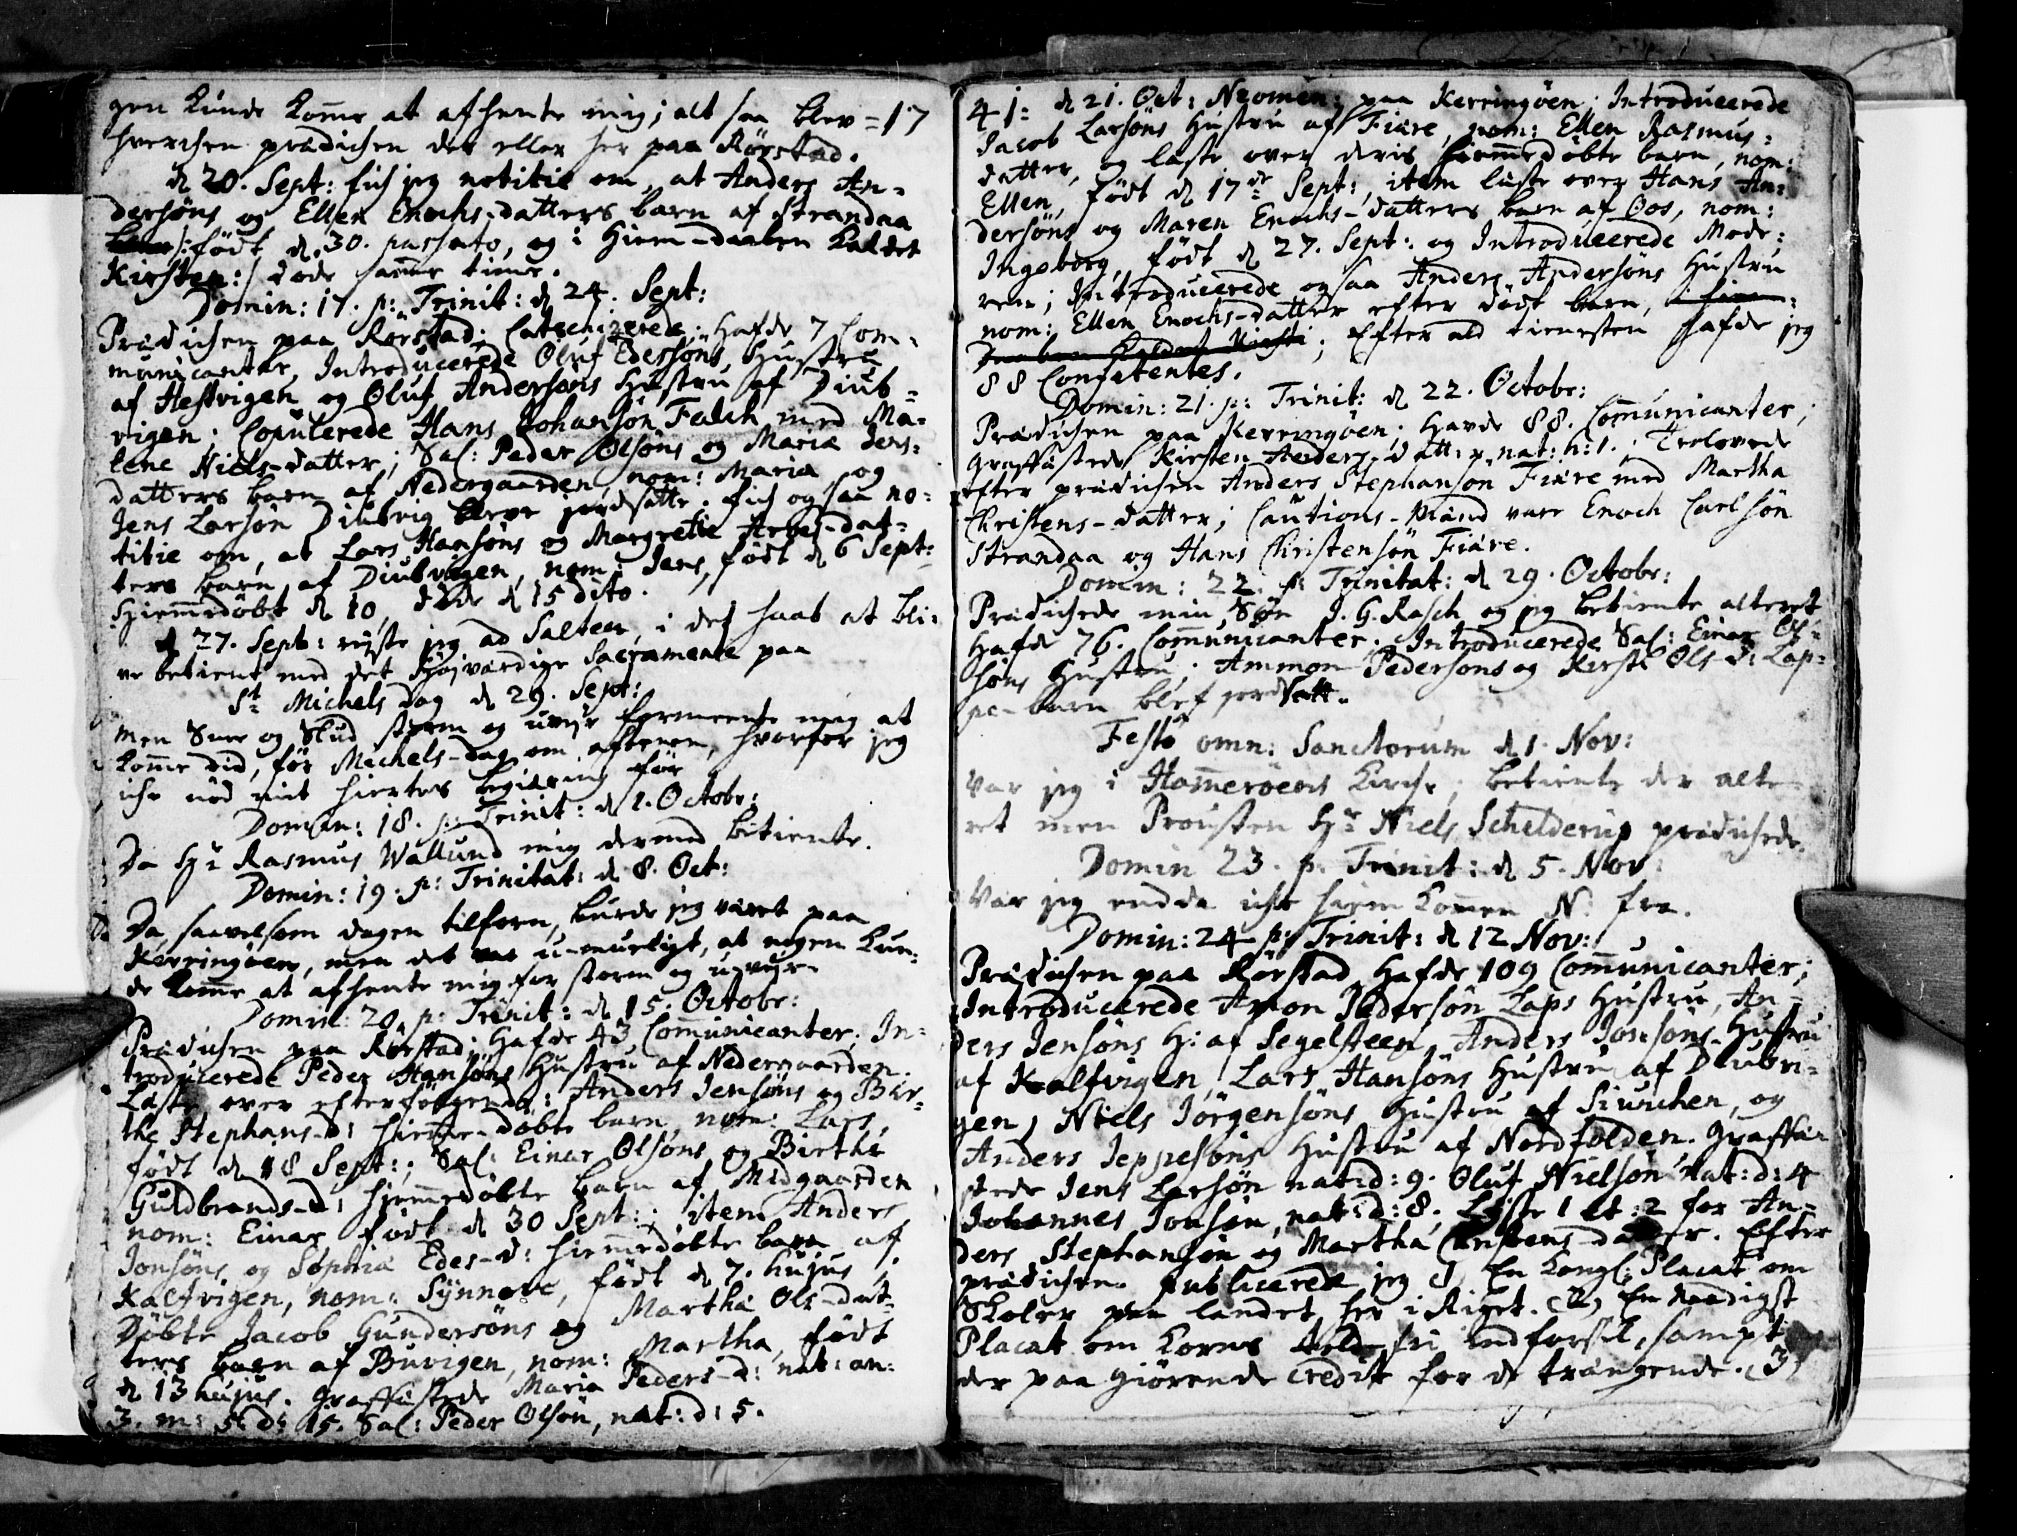 gen kunde komme at afhente mig; alt saa blev = 17
hverchen prædichen der eller her paa Rørstad.
d 20. Sept: fich jeg notitie om, at Anders An-
dersøns og Ellen Enochs-datters barn af Strandaa
/: født d. 30. passato, og i Hiem-daaben kaldet
Kirsten :/ døde samme time.
Domin: 17. p: Trinit: d 24. Sept:
Prædichen paa Rørstad; Catechizerede; Hafde 7 Com-
municanter, Introducerede Oluf Edersøns Hustru
af Hestvigen og Oluf Andersøns Hustru af Diub-
vigen; Copulerede Hans Johansøn Falch med Ma-
lene Niels-datter; Sal: Peder Olsøns og Maria Jens-
datters barn af Nedergaarden, nom: Maria, og
Jens Larsøn Diubvig bleve jordsatte. fich og saa no-
titie om, at Lars Hansøns og Margrete Arnes-dat-
ters barn, af Diubvigen, nom: Jens, født d 6 Sept:
Hiemmedøbt d 10, døde d 15 dito.
d 27. Sept: rejste jeg ad Salten, i det haab at bli-
ve betient med det Højværdige Sacramente paa
St Michels dag d 29. Sept:
men Snee og Slud storm og uvejr formeente mig at
komme did, før Michels-dag om aftenen, hvorfor jeg
iche nød mit hiertes begiering før
Domin: 18. p: Trinit: d 1. Octobr:
Da Hr Rasmus Wallund mig dermed betiente.
Domin: 19. p: Trinitat: d 8. Oct:
Da, saavelsom dagen tilforn, burde jeg været paa
Kerringøen, men det var u-mueligt, at nogen kun-
de komme at afhente mig for storm og u-vejr
Domin: 20. p: Trinit: d 15. Octobr:
Prædichen paa Rørstad; Hafde 43 Communicanter; In-
troducerede Peder Hansøns Hustru af Nedergaarden.
Læste over efterfølgende: Anders Jensøns og Bir-
the Stephans-d: hiemme-døbte barn, nom: Lars,
født d 18 Sept:; Sal: Einar Olsøns og Birthe
Guldbrands-d: hiemmedøbte barn af Midgaarden
nom: Einar født d 30 Sept:; item Anders
Jonsøns og Sophia Edes-d: hiemmedøbte barn af
Kalfvigen, nom: Synnove, født d 7. hujus;
Døbte Jacob Gundersøns og Martha Ols-dat-
ters barn af Buvigen, nom: Martha, født
d 13 hujus. Graffæstede Maria Peders-d: nat: an:
3. m: 5. d: 15. Sal: Peder Olsøn, nat: d: 5.
41: d 21. Oct: Neomen: paa Kerringøen; Introducerede
Jacob Larsøns Hustru af Fiære, nom: Ellen Rasmus-
datter, og læste over deris hiemmedøbte barn, nom:
Ellen, født d 17de Sept:, item læste over Hans An-
dersøns og Maren Enochs-datters barn af Oos, nom:
Ingeborg, født d 27. Sept: og Introducerede Mode-
ren; Introducerede ogsaa Anders Andersøns Hustru
nom: Ellen Enochs-datter efter dødt barn,
; Efter all tienesten hafde jeg
88 Confitentes.
Domin: 21. p: Trinit: d 22. Octobr:
Prædichen paa Kerringøen; Havde 88. Communicanter;
Graffæstede Kirsten Anders-datt:, nat: h: 1.; Trolovede
efter prædichen Anders Stephansøn Fiære med Martha
Christens-datter; Cautions-Mænd vare Enoch Carlsøn
Strandaa og Hans Christensøn Fiære.
Domin: 22. p: Trinitat: d 29. Octobr:
Prædichede min Søn J. G. Rasch og jeg betiente alteret
Hafde 76. Communicanter. Introducerede Sal: Einar Ol-
søns Hustru; Ammon Pedersøns og Kirsti Ols-d: Lap-
pe-barn blef jordsatt.
Festo omn: Sanctorum d 1. Nov:
Var jeg i Hammerøens Kirche; betiente der alte-
ret men Prousten Hr Niels Schelderup prædichede.
Domin 23. p. Trinit: d 5. Nov:
Var jeg endda iche hiem kommen N. fra.
Domin: 24 p: Trinit: d 12 Nov:
Prædichen paa Rørstad Hafde 109 Communicanter;
Introducerede Amon Pedersøn Laps Hustru, An-
ders Jensøns H: af Segelsteen, Anders Jonsøns Hustru
af Kalfvigen, Lars Hansøns Hustru af Diubvi-
gen, Niels Jørgensøns Hustru af Siurchen, og
Anders Jeppesøns Hustru af Nordfolden. Graffæ-
stede Jens Larsøn nat: d: 9. Oluf Nielsøn nat: d: 4
Johannes Jonsøn, nat: d: 8. Lyste 1 et: 2 for An-
ders Stephansøn og Martha Christens-datter. Efter
prædichen publicerede jeg 1) En Kongl: Placat om
Skoler paa landet her i Riget. (2) En naadigst
Placat om Korns told-fri indførsel, sampt
der paa giørende credit for de trængende. (3)